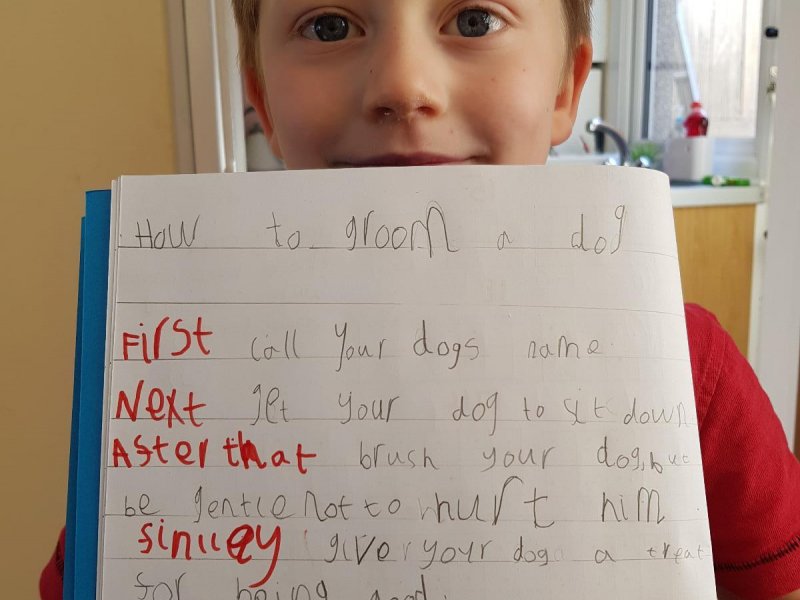 How to groom a dog
First call your dogs name
Next get your dog to sit down
After that brush your dog, but
be gentle not to hurt him
sinlley give your dog a treat
for being good.